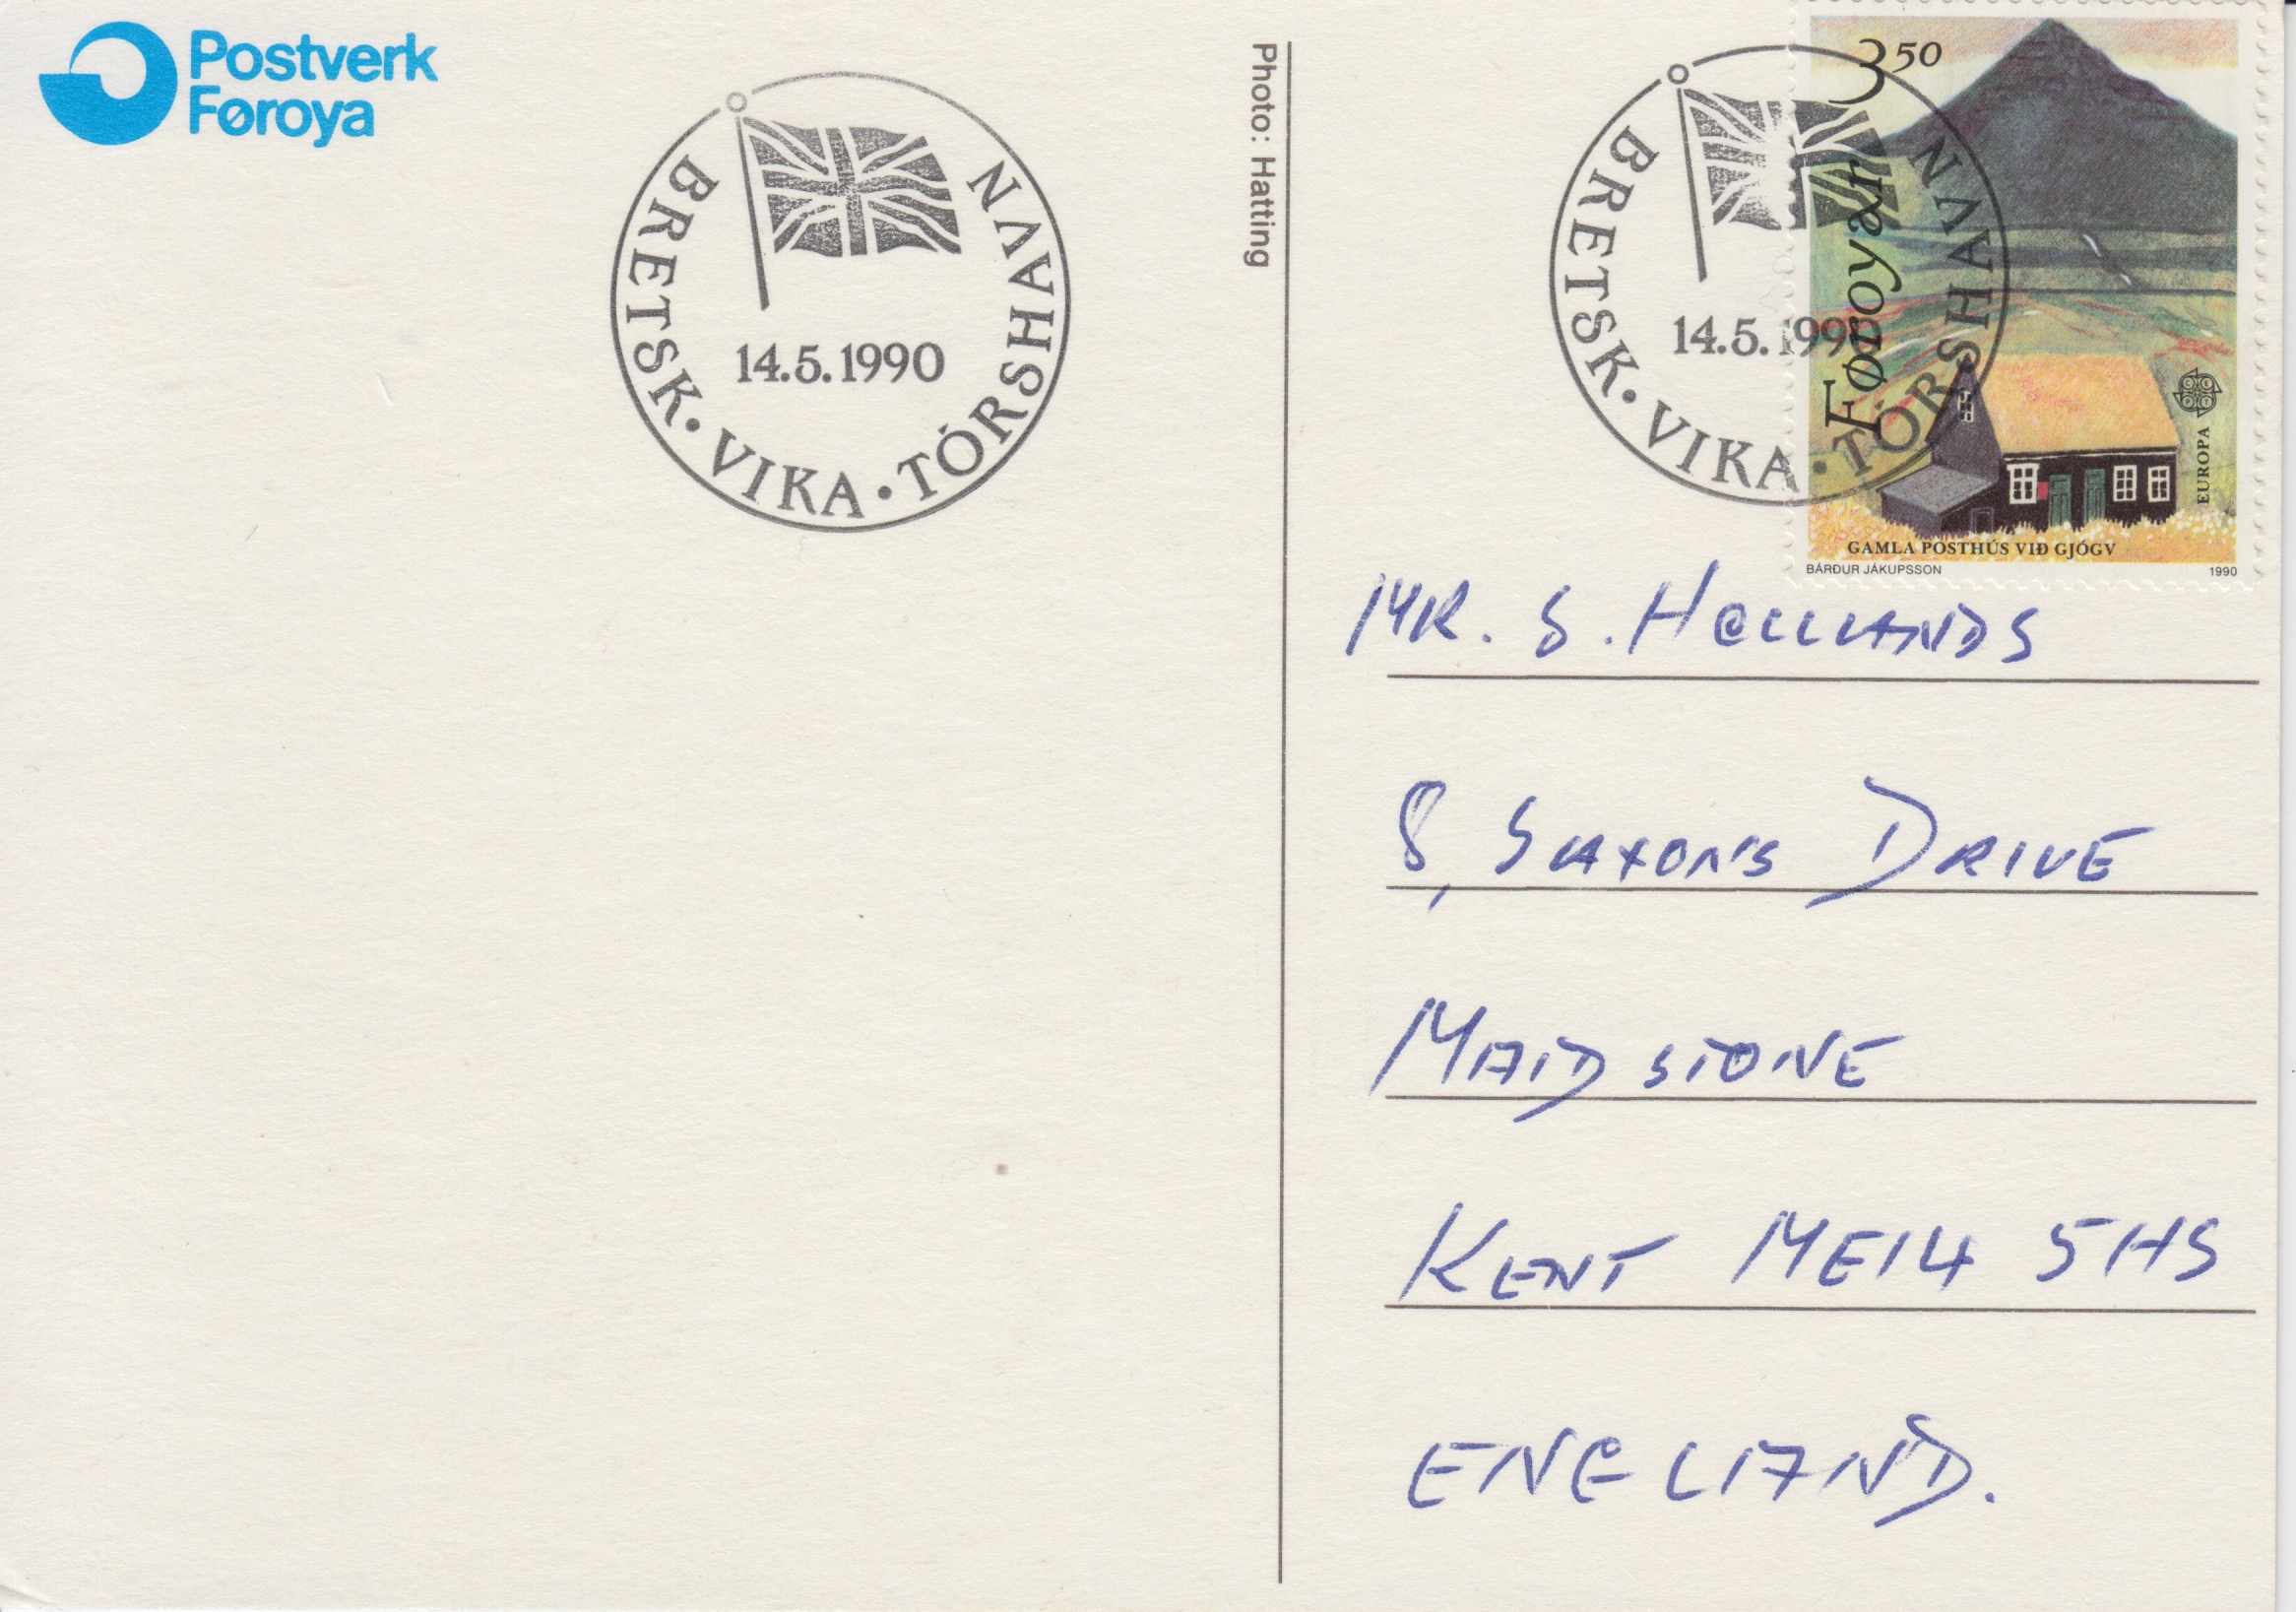 Postverk
Føroya
BRETSK • VIKA • TÓRSHAVN
14.5.1990
Photo: Hatting
BRETSK • VIKA • TÓRSHAVN
14.5.1990
350
Føroyar
EUROPA
GAMLA POSTHÚS VIÐ GJÓGV
BÁRÐUR JÁKUPSSON 1990
MR. S. HOLLANDS
8, SAXONS DRIVE
MAIDSTONE
KENT ME14 5HS
ENGLAND.